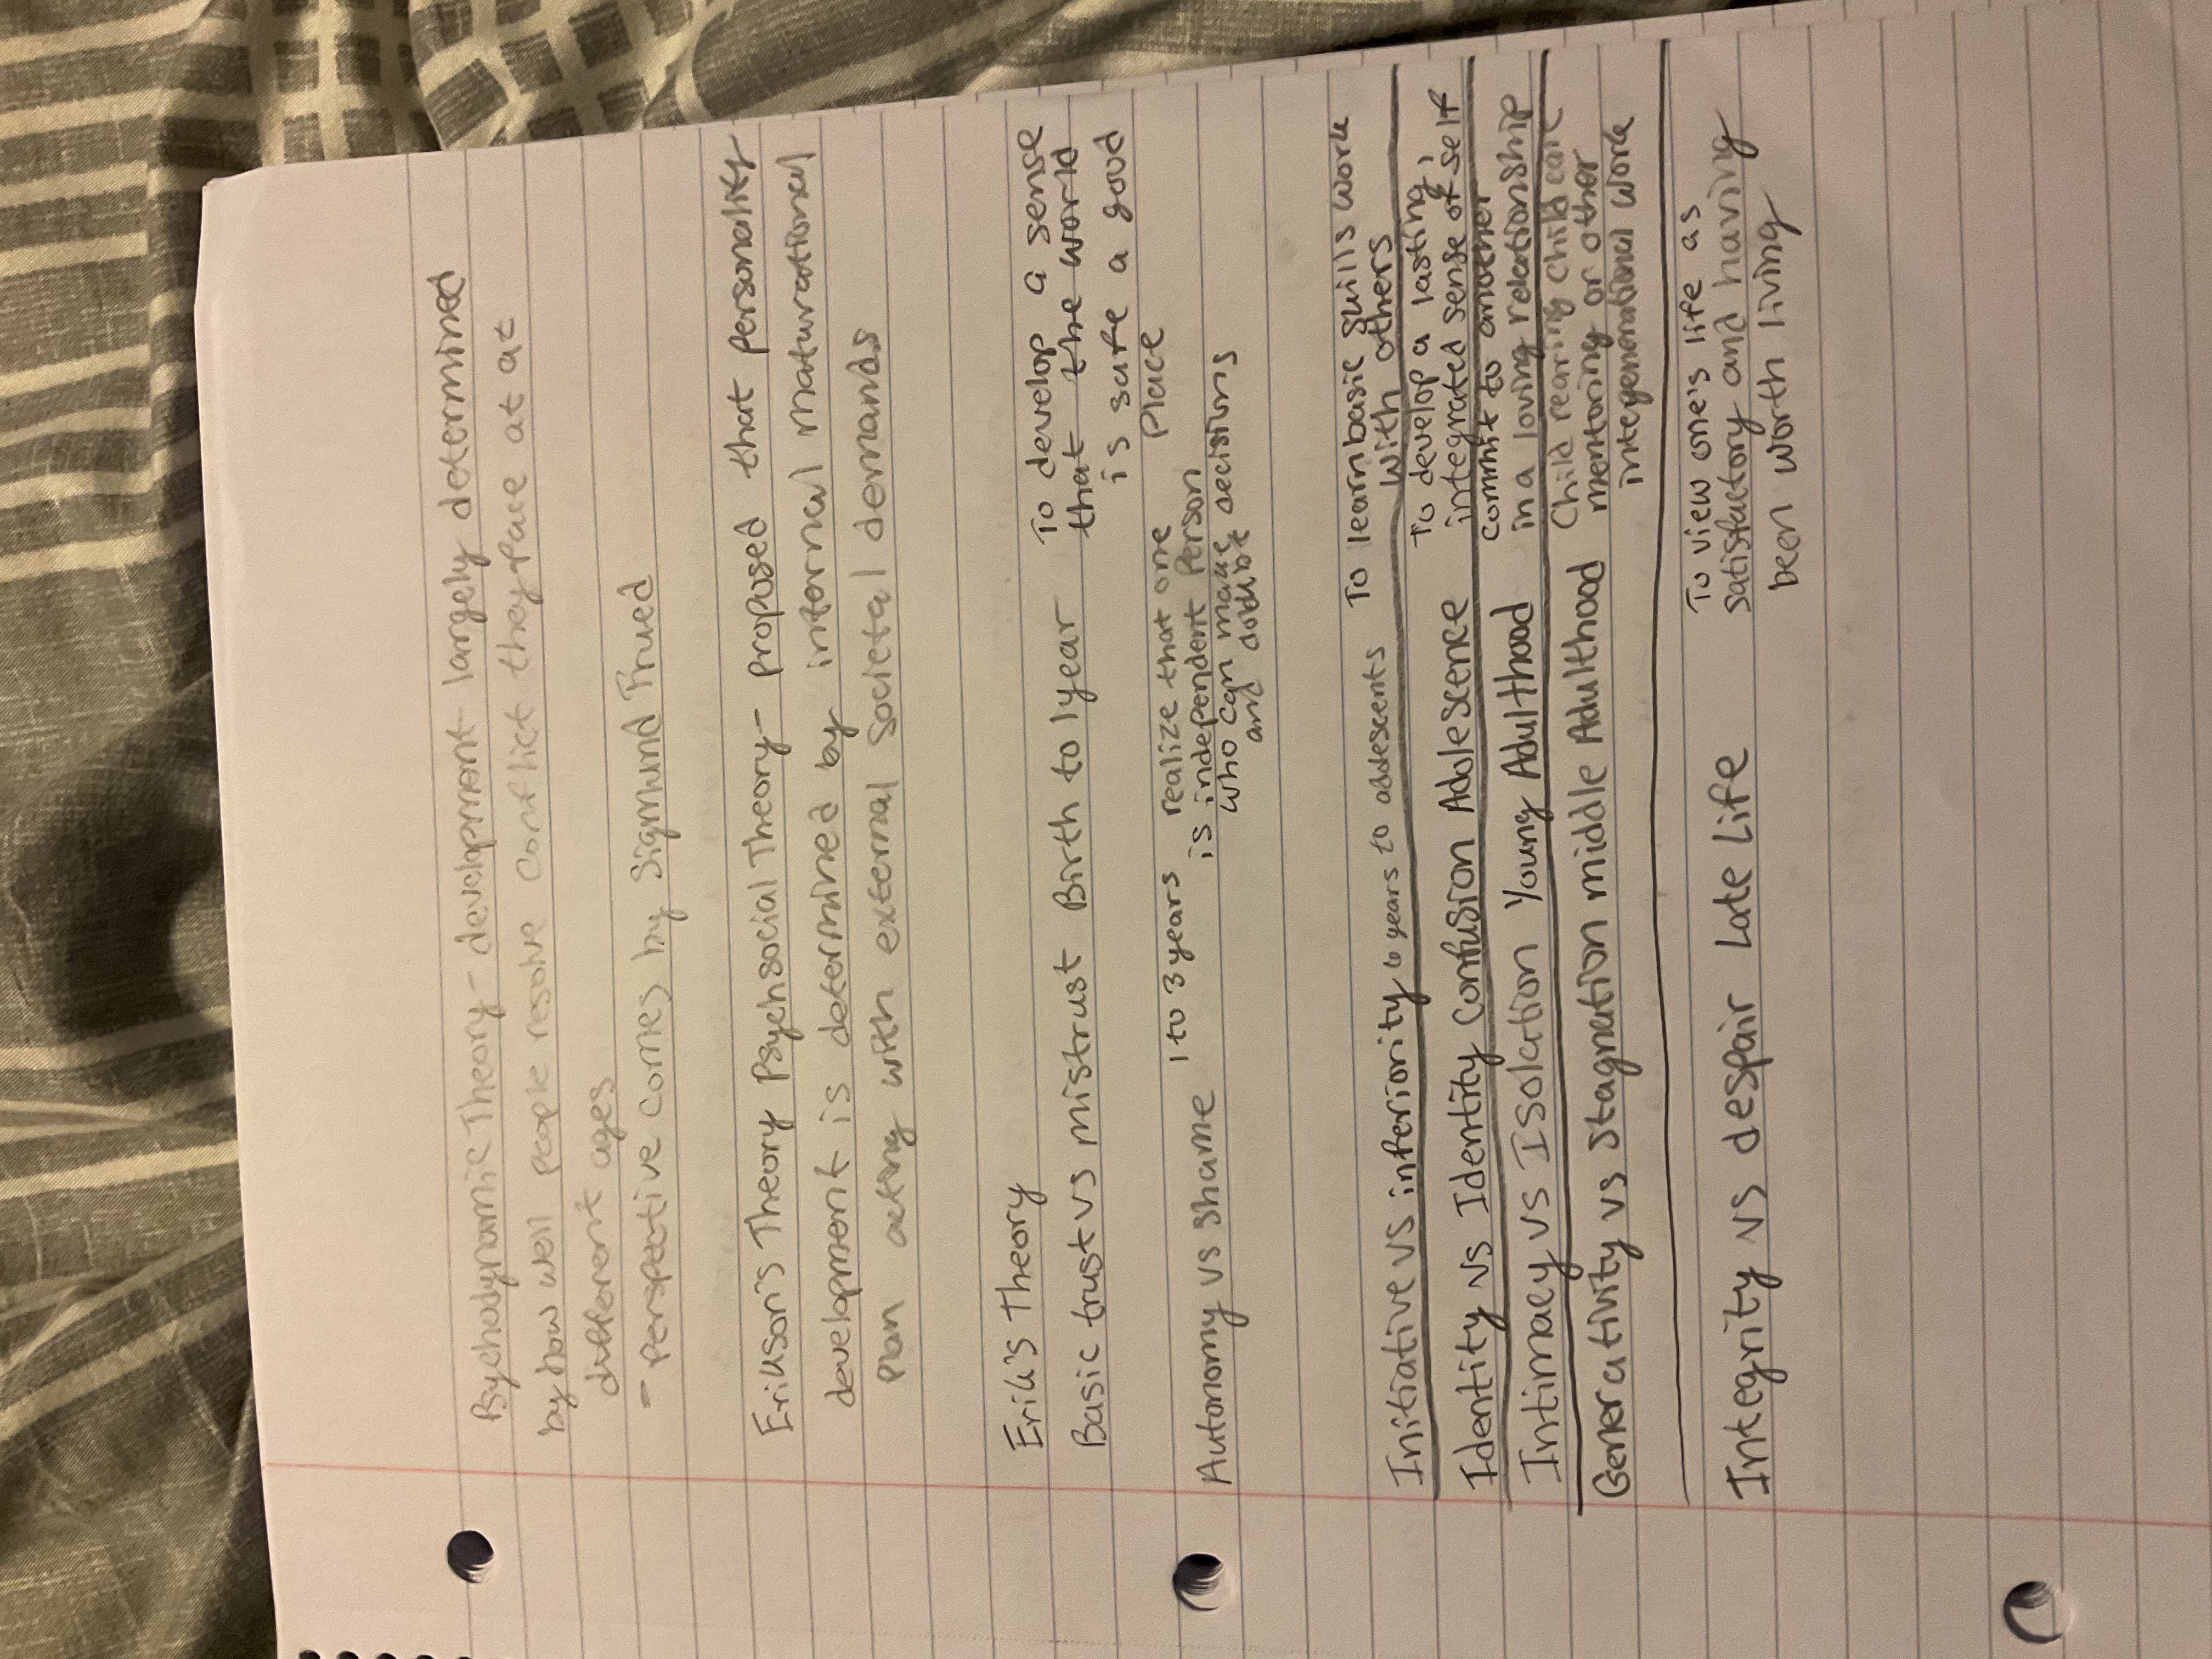 Psychodynamic Theory - development largely determined
by how well people resolve conflict they face at at
different ages
- Perspective comes by Sigmund Frued
Erikson's Theory Psychsocial Theory - proposed that personality
development is determined by internal maturational
plan acting with external societal demands
Erik's Theory
Basic trust vs mistrust Birth to 1year To develop a sense
that the world
is safe a good
place
Autonomy vs shame 1 to 3 years realize that one
is independent person
who can make decisions
and
Initiative vs inferiority 6 years to To learn basic skills work
with others
Identity vs Identity Confusion Adolescence To develop a lasting,
integrated sense of self
Intimacy vs Isolation Young Adulthood commit to another
in a loving relationship
Generativity vs Stagnation middle Adulthood Child rearing child care
mentoring or other
intergenerational work
Integrity vs despair Late Life To view one's life as
satisfactory and having
been worth living